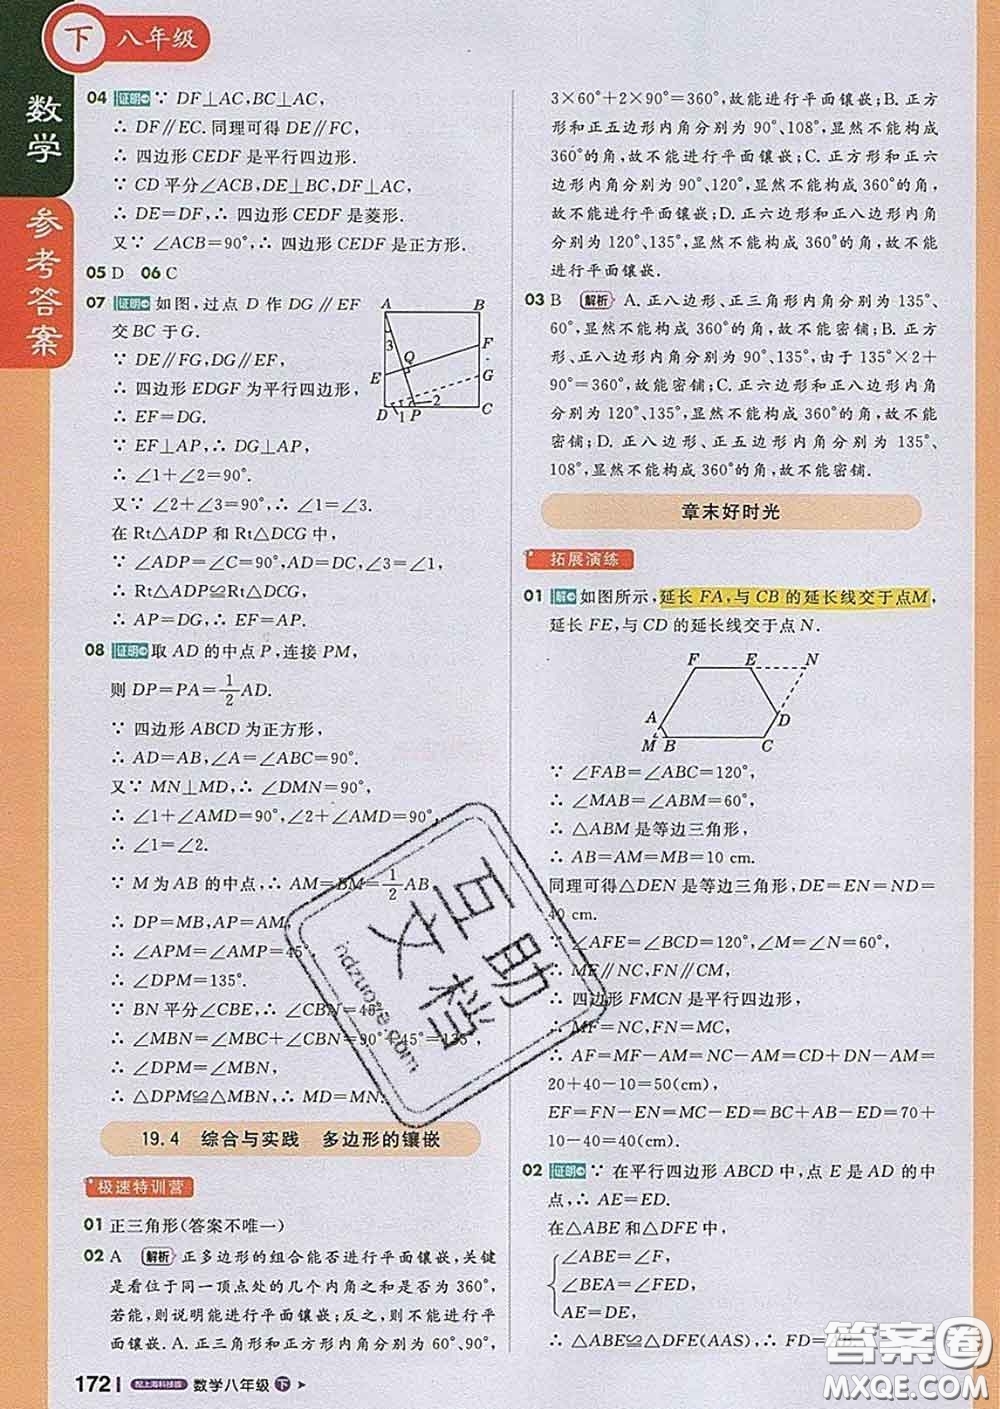 下 八年级
数学
参考答案
04 证明 ∵ DF⊥AC,BC⊥AC,
∴ DF∥EC.同理可得DE∥FC,
∴ 四边形CEDF是平行四边形.
∵ CD平分∠ACB,DE⊥BC,DF⊥AC,
∴ DE=DF,∴ 四边形CEDF是菱形.
又∵ ∠ACB=90°,∴ 四边形CEDF是正方形.
05 D 06 C
07 证明 如图,过点D作DG∥EF
交BC于G.
∵ DE∥FG,DG∥EF,
∴ 四边形EDGF为平行四边形,
∴ EF=DG.
∵ EF⊥AP,∴ DG⊥AP,
∴ ∠1+∠2=90°.
又∵ ∠2+∠3=90°,∴ ∠1=∠3.
在Rt△ADP和Rt△DCG中,
∵ ∠ADP=∠C=90°,AD=DC,∠3=∠1,
∴ Rt△ADP≌Rt△DCG,
∴ AP=DG,∴ EF=AP.
A B 3 F Q E G 2 D 1 P C
08 证明 取AD的中点P,连接PM,
则DP=PA=1/2AD.
∵ 四边形ABCD为正方形,
∴ AD=AB,∠A=∠ABC=90°.
又∵ MN⊥MD,∴ ∠DMN=90°,
∴ ∠1+∠AMD=90°,∠2+∠AMD=90°,
∴ ∠1=∠2.
∵ M为AB的中点,∴ AM=BM=1/2AB,
∴ DP=MB,AP=AM,
∴ ∠APM=∠AMP=45°,
∴ ∠DPM=135°.
∵ BN平分∠CBE,∴ ∠CBN=45°,
∴ ∠MBN=∠MBC+∠CBN=90°+45°=135°,
∴ ∠DPM=∠MBN,
∴ △DPM≌△MBN,∴ MD=MN.
19.4 综合与实践 多边形的镶嵌
极速特训营
01 正三角形(答案不唯一)
02 A 解析 正多边形的组合能否进行平面镶嵌,关键
是看位于同一顶点处的几个内角之和是否为360°,
若能,则说明能进行平面镶嵌;反之,则不能进行平
面镶嵌.A.正三角形和正方形内角分别为60°、90°,
3×60°+2×90°=360°,故能进行平面镶嵌;B.正方
形和正五边形内角分别为90°、108°,显然不能构成
360°的角,故不能进行平面镶嵌;C.正方形和正六
边形内角分别为90°、120°,显然不能构成360°的角,
故不能进行平面镶嵌;D.正六边形和正八边形内角
分别为120°、135°,显然不能构成360°的角,故不能
进行平面镶嵌.
03 B 解析 A.正八边形、正三角形内角分别为135°、
60°,显然不能构成360°的角,故不能密铺;B.正方
形、正八边形内角分别为90°、135°,由于135°×2+
90°=360°,故能密铺;C.正六边形和正八边形内角
分别为120°、135°,显然不能构成360°的角,故不能
密铺;D.正八边形、正五边形内角分别为135°、
108°,显然不能构成360°的角,故不能密铺.
章末好时光
拓展演练
01 解 如图所示,延长FA,与CB的延长线交于点M,
延长FE,与CD的延长线交于点N.
F E N A D M B C
∵ ∠FAB=∠ABC=120°,
∴ ∠MAB=∠ABM=60°,
∴ △ABM是等边三角形,
∴ AB=AM=MB=10 cm.
同理可得△DEN是等边三角形,DE=EN=ND=
40 cm.
∵ ∠AFE=∠BCD=120°,∠M=∠N=60°,
∴ ME∥NC,FN∥CM,
∴ 四边形FMCN是平行四边形,
∴ MF=NC,FN=MC,
∴ AF=MF-AM=NC-AM=CD+DN-AM=
20+40-10=50(cm),
EF=FN-EN=MC-EN=MB+BC-EN=70+
10-40=40(cm).
02 证明 ∵ 在平行四边形ABCD中,点E是AD的中
点,∴ AE=ED.
在△ABE和△DFE中,
∠ABE=∠F,
∠BEA=∠FED,
AE=DE,
∴ △ABE≌△DFE(AAS),∴ FD=
172 配上海科技版 数学八年级 下
互助文档
hdzuoye.com
答案圈
MXQE.COM